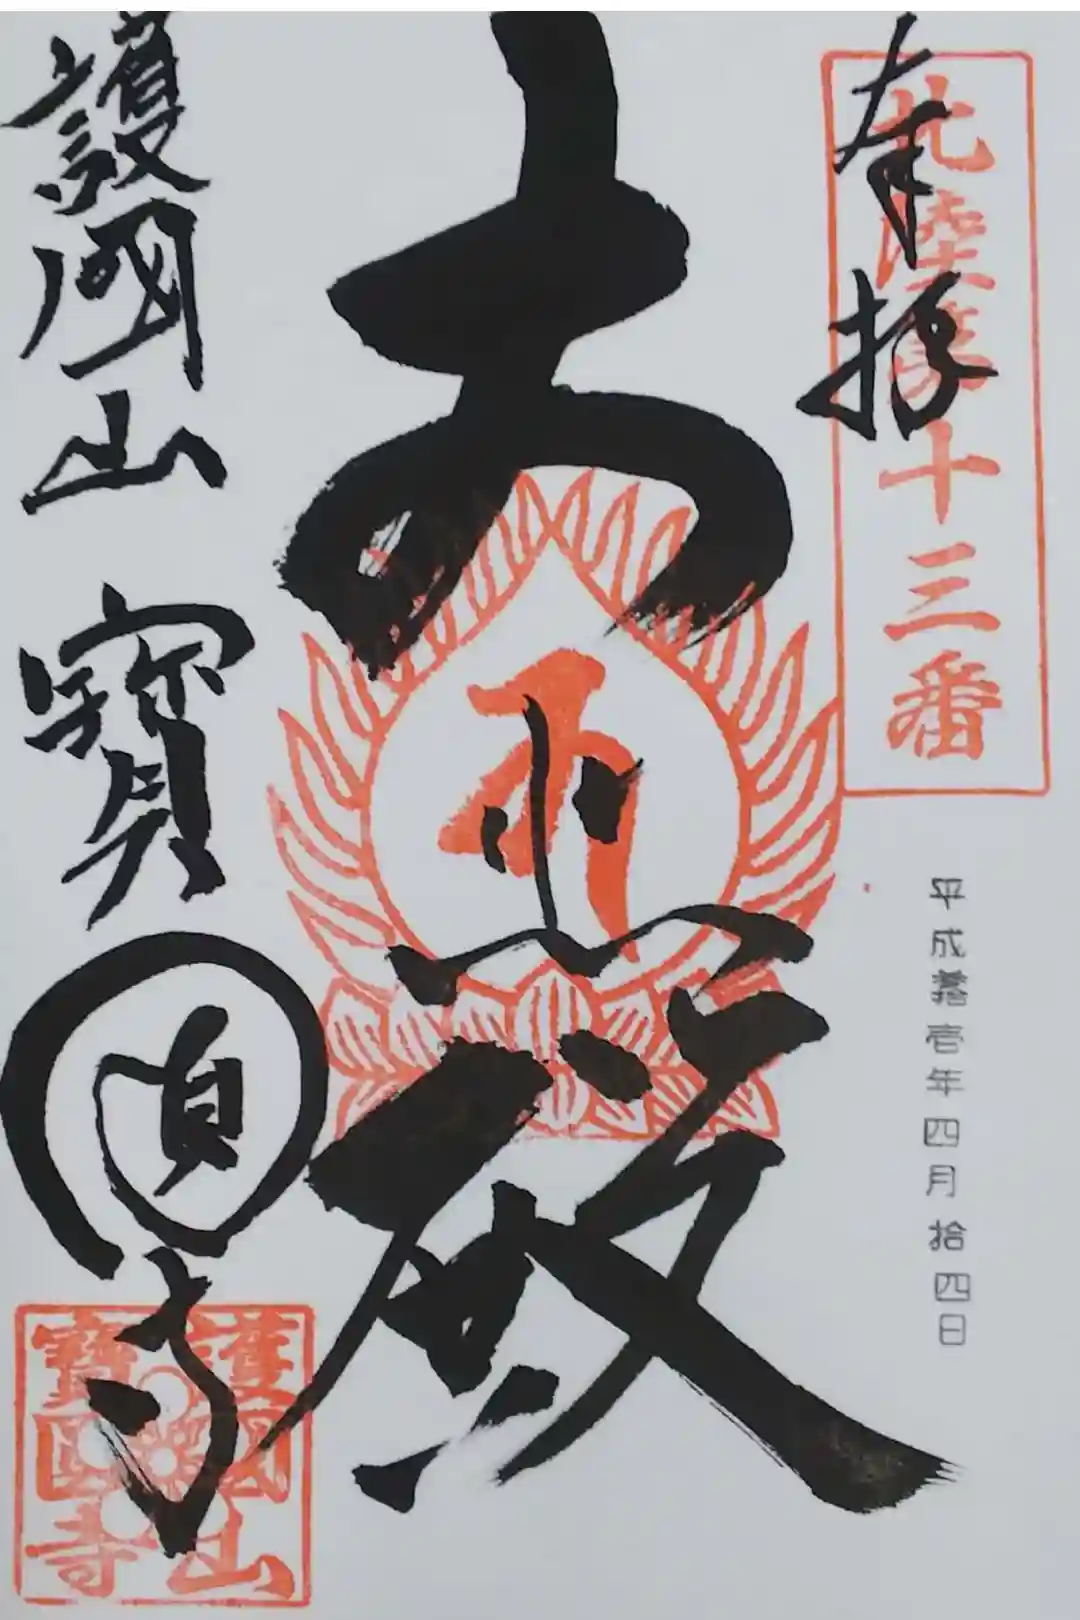 奉拝
北陸第十三番
平成参拾壱年四月拾四日
大悲殿
護國山 寶圓寺
護國山
寶圓寺